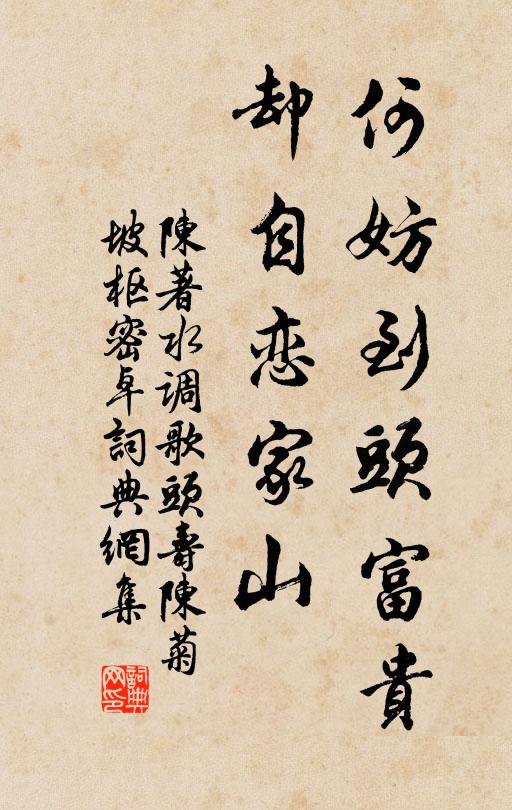 何妨到頭富貴
却自恋家山
陳著水调歌頭壽陳菊
坡枢密卓詞典網集
詞典
网印